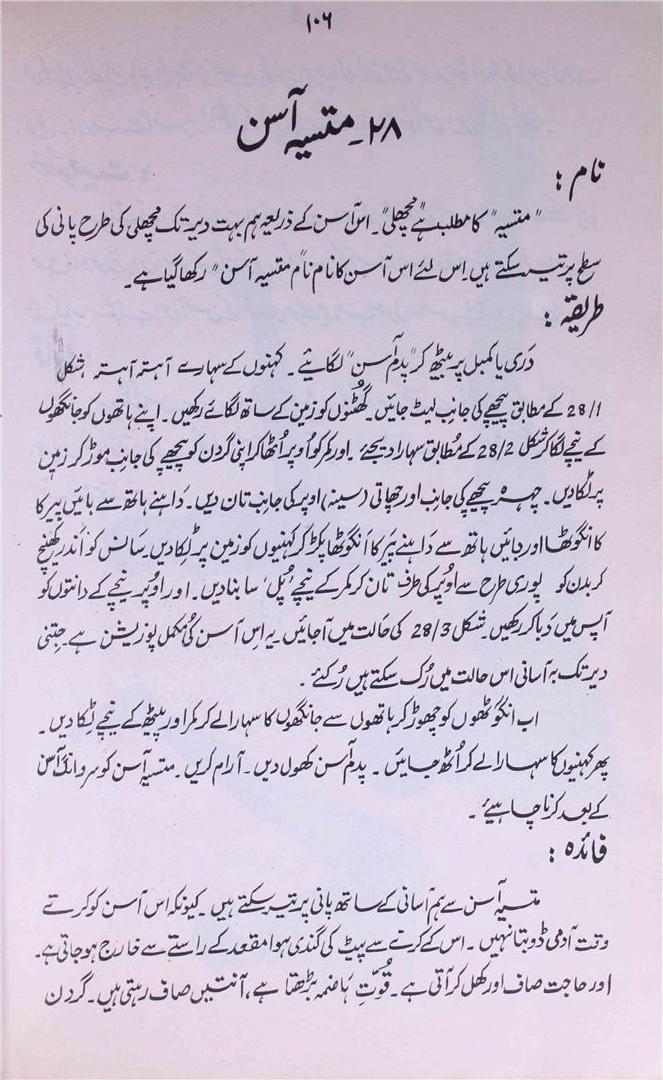 ۱۰۶
۲۸۔ متسیہ آسن
نام :
”متسیہ“ کا مطلب ہے ”مچھلی“۔ اس آسن کے ذریعہ ہم بہت دیر تک مچھلی کی طرح پانی کی
سطح پر تیر سکتے ہیں اِس لئے اس آسن کا نام نام ”متسیہ آسن“ رکھا گیا ہے۔
طریقہ :
دَری یا کمبل پر بیٹھ کر ”پدم آسن“ لگائیے۔ کہنوں کے سہارے آہتہ آہتہ شکل
28/1 کے مطابق پیچھے کی جانب لیٹ جائیں۔ گھُٹنوں کو زمین کے ساتھ لگائے رکھیں۔ اپنے ہاتھوں کو جانگھوں
کے نیچے لگا کر شکل 28/2 کے مطابق سہارا دیجئے۔ اور کمر کو اُوپر اُٹھا کر اپنی گردن کو پیچھے کی جانب موڑ کر زمین
پر ٹکا دیں۔ چہرہ پیچھے کی جانب اور چھاتی (سینہ) اوپر کی جانب تان دیں۔ داہنے ہاتھ سے بائیں پیر کا
کا انگوٹھا اور بائیں ہاتھ سے داہنے پَیر کا انگوٹھا پکڑ کر کہنیوں کو زمین پر ٹِکا دیں سانس کو اَندر کھینچ
کر بدن کو پوری طرح سے اوپر کی طرف تان کر کمر کے نیچے ’پُل‘ سا بنا دیں۔ اور اوپر نیچے کے دانتوں کو
آپس میں دَبا کر رکھیں۔ شکل 28/3 کی حالت میں آ جائیں۔ یہ اِس آسن کی مکمل پوزیشن ہے۔ جتنی
دیر تک بہ آسانی اس حالت میں رُک سکتے ہیں رُکئے۔
اب انگوٹھوں کو چھوڑ کر ہاتھوں سے جانگھوں کا سہارا لے کر کمر اور پیٹھ کے نیچے ٹِکا دیں۔
پھر کہنیوں کا سہارا لے کر اُٹھ جائیں۔ پدم آسن کھول دیں۔ آرام کریں۔ متسیہ آسن کو سروانگ آسن
کے بعد کرنا چاہیئے۔
فائدہ :
متسیہ آسن سے ہم آسانی کے ساتھ پانی پر تیر سکتے ہیں۔ کیونکہ اس آسن کو کرتے
وقت آدمی ڈوبتا نہیں۔ اس کے کرنے سے پیٹ کی گندی ہوا مقعد کے راستے سے خارج ہو جاتی ہے۔
اور حاجت صاف اور کھل کر آتی ہے۔ قُوّتِ ہاضمہ بڑھتا ہے، آنتیں صاف رہتی ہیں۔ گردن